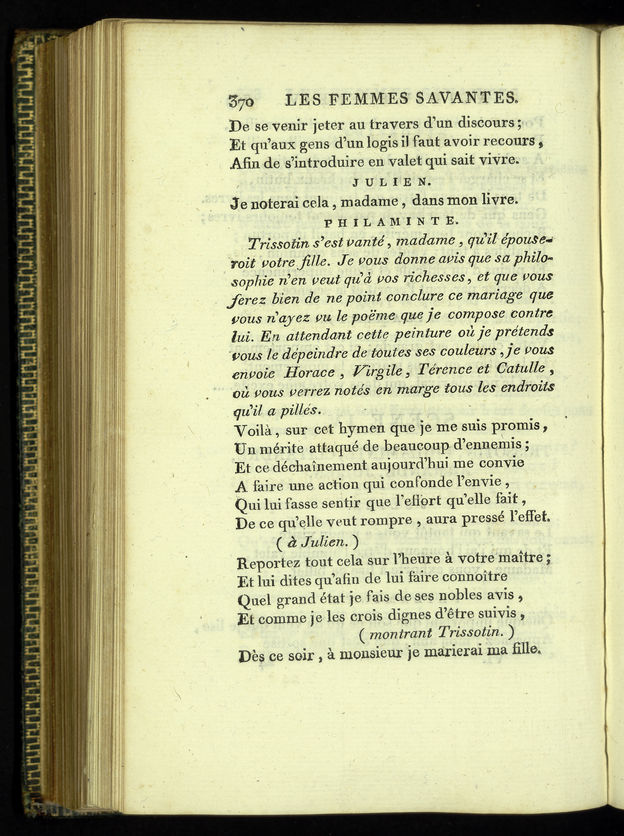 370 LES FEMMES SAVANTES.
De se venir jeter au travers d'un discours ;
Et qu'aux gens d'un logis il faut avoir recours ,
Afin de s'introduire en valet qui sait vivre.
JULIEN.
Je noterai cela , madame , dans mon livre.
PHILAMINTE.
Trissotin s'est vanté , madame , qu'il épouse-
roit votre fille. Je vous donne avis que sa philo-
sophie n'en veut qu'à vos richesses , et que vous
ferez bien de ne point conclure ce mariage que
vous n'ayez vu le poëme que je compose contre
lui. En attendant cette peinture où je prétends
vous le dépeindre de toutes ses couleurs , je vous
envoie Horace , Virgile , Térence et Catulle ,
où vous verrez notés en marge tous les endroits
qu'il a pillés.
Voilà , sur cet hymen que je me suis promis ,
Un mérite attaqué de beaucoup d'ennemis ;
Et ce déchaînement aujourd'hui me convie
A faire une action qui confonde l'envie ,
Qui lui fasse sentir que l'effort qu'elle fait ,
De ce qu'elle veut rompre , aura pressé l'effet.
( à Julien. )
Reportez tout cela sur l'heure à votre maître ;
Et lui dites qu'afin de lui faire connoître
Quel grand état je fais de ses nobles avis ,
Et comme je les crois dignes d'être suivis ,
( montrant Trissotin. )
Dès ce soir , à monsieur je marierai ma fille.